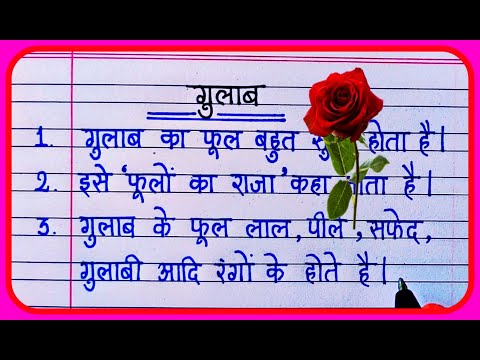 गुलाब
1. गुलाब का फूल बहुत होता है।
2. इसे 'फूलों का राजा' कहा है।
3. गुलाब के फूल लाल, पीले, सफेद,
गुलाबी आदि रंगों के होते है।